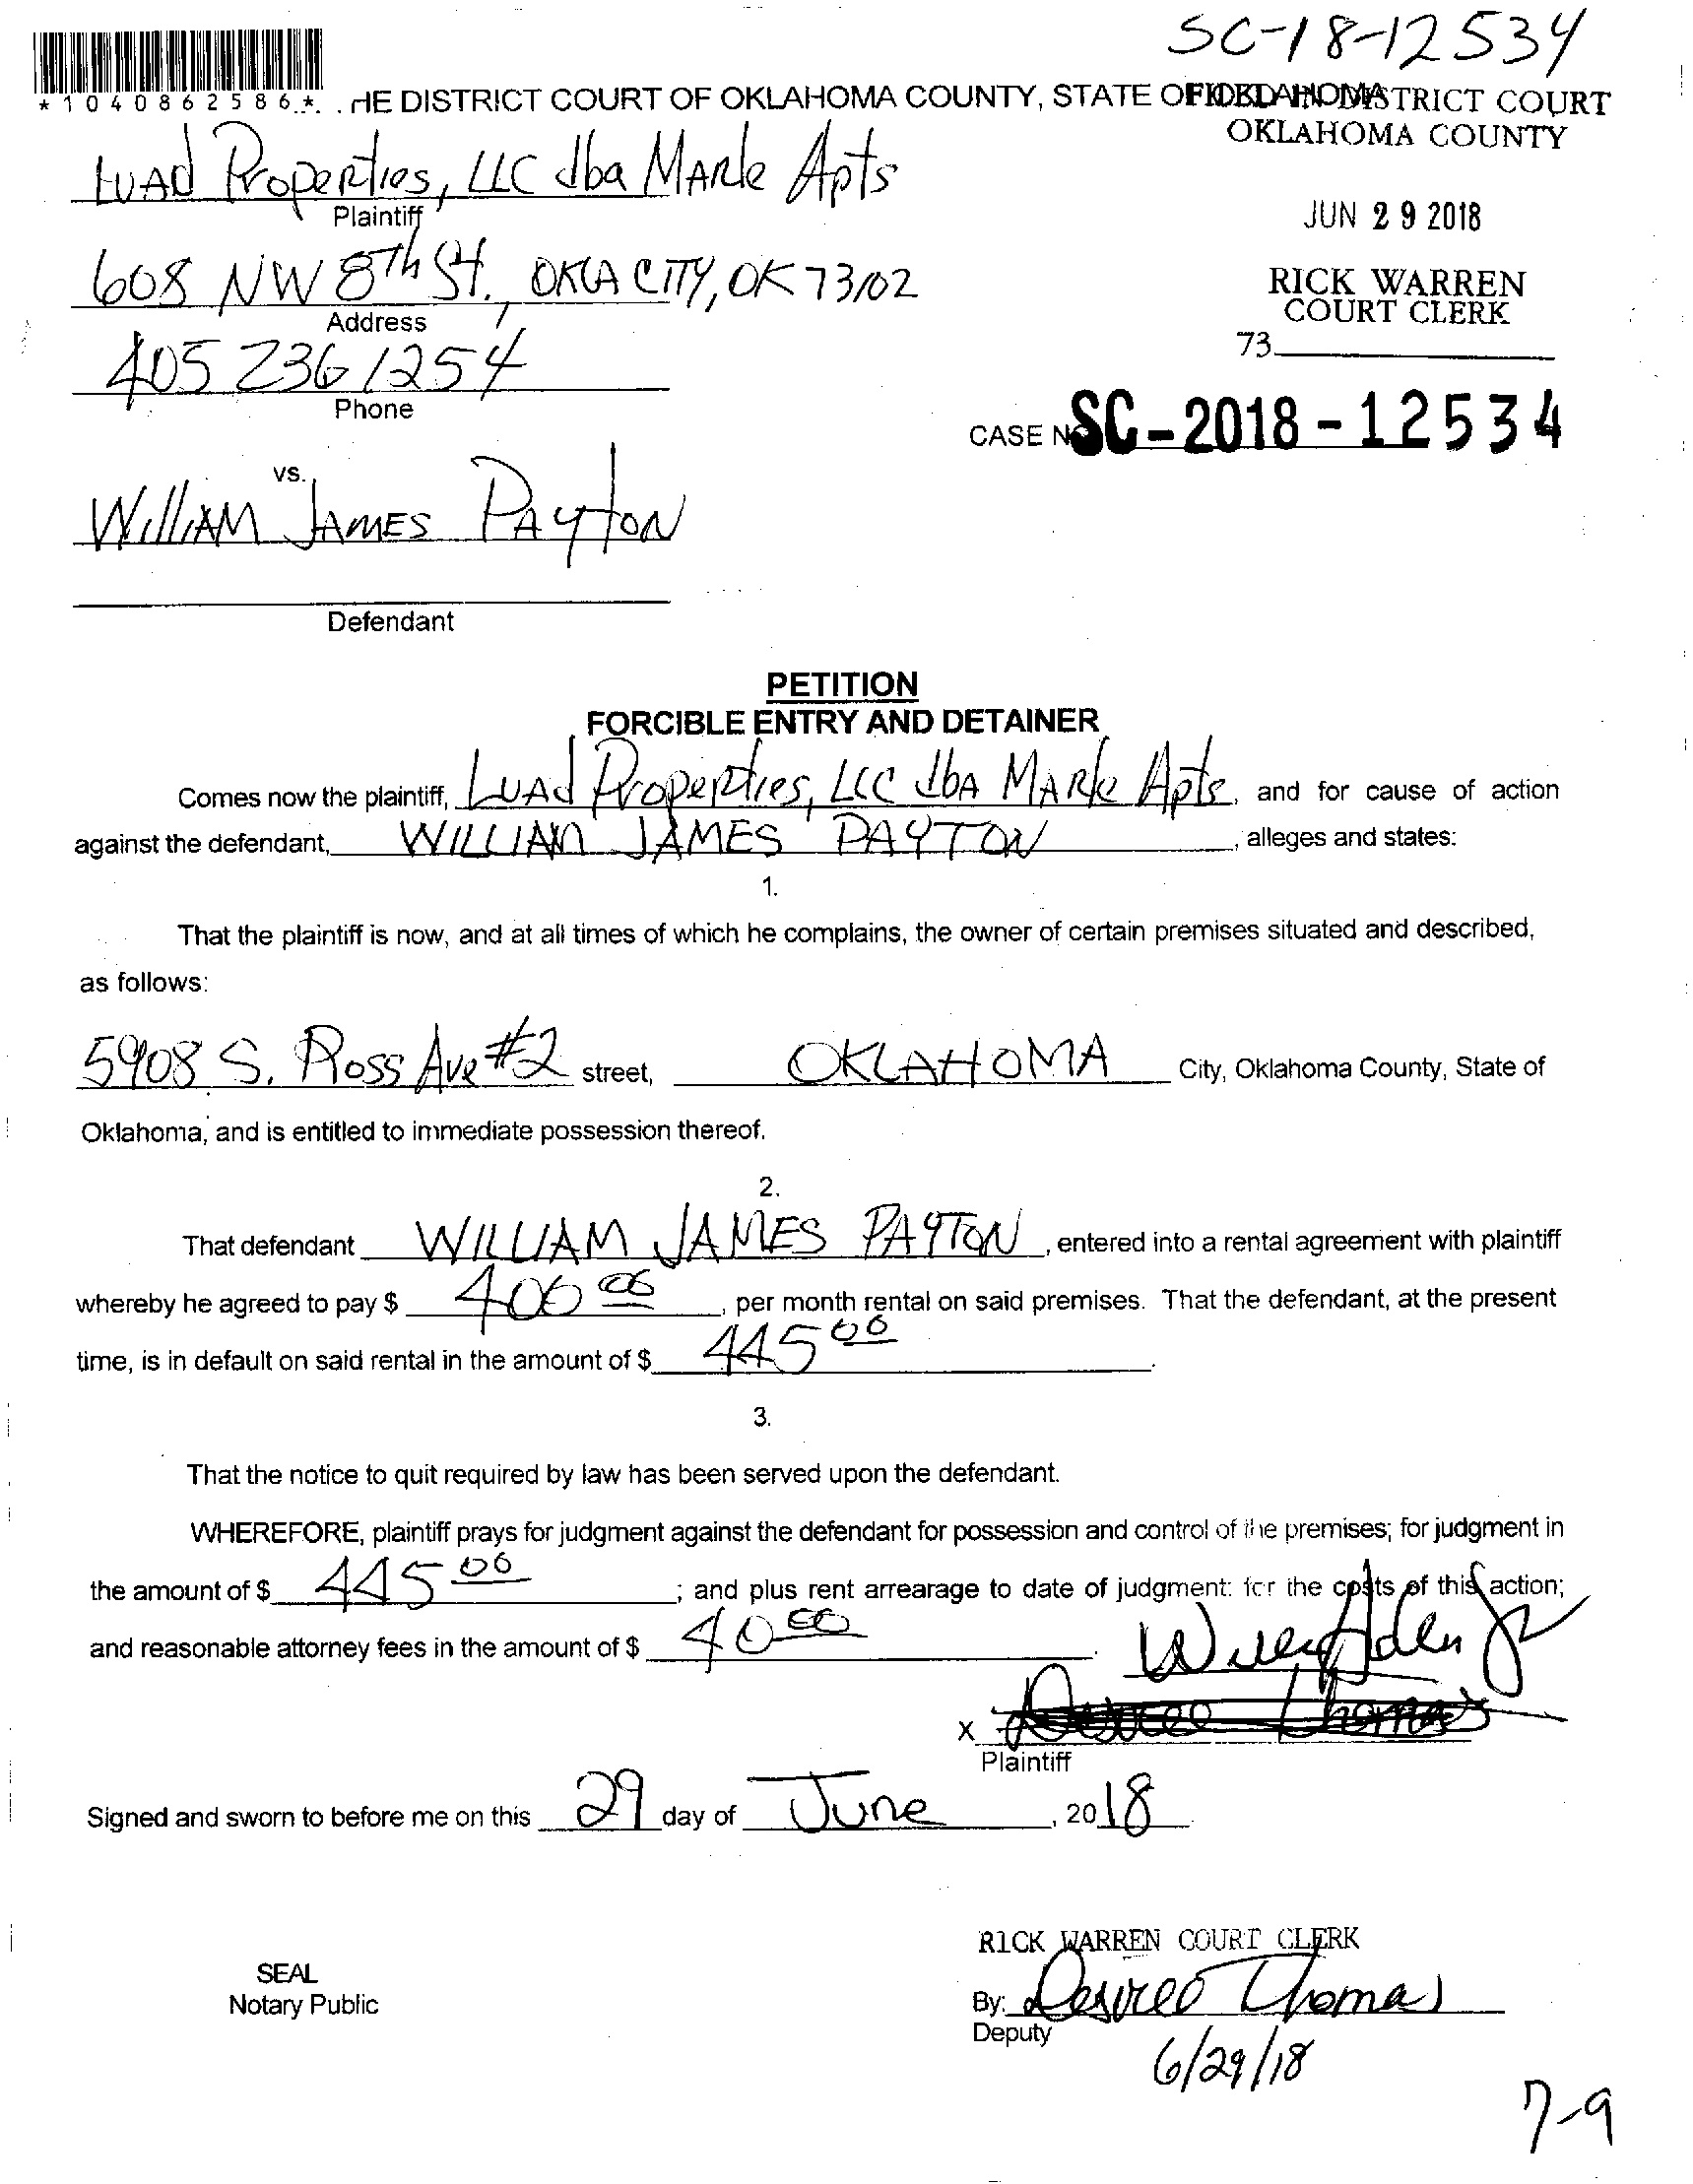 SC-18-12534
*1040862586*
HE DISTRICT COURT OF OKLAHOMA COUNTY, STATE OF OKLAHOMA
DISTRICT COURT
OKLAHOMA COUNTY
LUAD Properties, LLC dba MARle Apts
Plaintiff
JUN 29 2018
608 NW 8Th St., OKLA CITY, OK 73102
Address
RICK WARREN
COURT CLERK
73
405 236 1254
Phone
CASE NO SC-2018-12534
vs.
WilliAM JAMES PAYTON
Defendant
PETITION
FORCIBLE ENTRY AND DETAINER
Comes now the plaintiff, LUAd Properties, LLC dbA MARle Apts, and for cause of action
against the defendant, WILLIAM JAMES PAYTON, alleges and states:
1.
That the plaintiff is now, and at all times of which he complains, the owner of certain premises situated and described,
as follows:
5908 S. Ross Ave #2 street, OKLAHOMA City, Oklahoma County, State of
Oklahoma, and is entitled to immediate possession thereof.
2.
That defendant WILLIAM JAMES PAYTON, entered into a rental agreement with plaintiff
whereby he agreed to pay $ 400 00, per month rental on said premises. That the defendant, at the present
time, is in default on said rental in the amount of $ 445 00.
3.
That the notice to quit required by law has been served upon the defendant.
WHEREFORE, plaintiff prays for judgment against the defendant for possession and control of the premises; for judgment in
the amount of $ 445 00; and plus rent arrearage to date of judgment: for the costs of this action;
and reasonable attorney fees in the amount of $ 40 00.
X Desiree Thomas
Plaintiff
Signed and sworn to before me on this 29 day of June, 2018
RICK WARREN COURT CLERK
SEAL
Notary Public
By: Desiree Thomas
Deputy
6/29/18
7-9